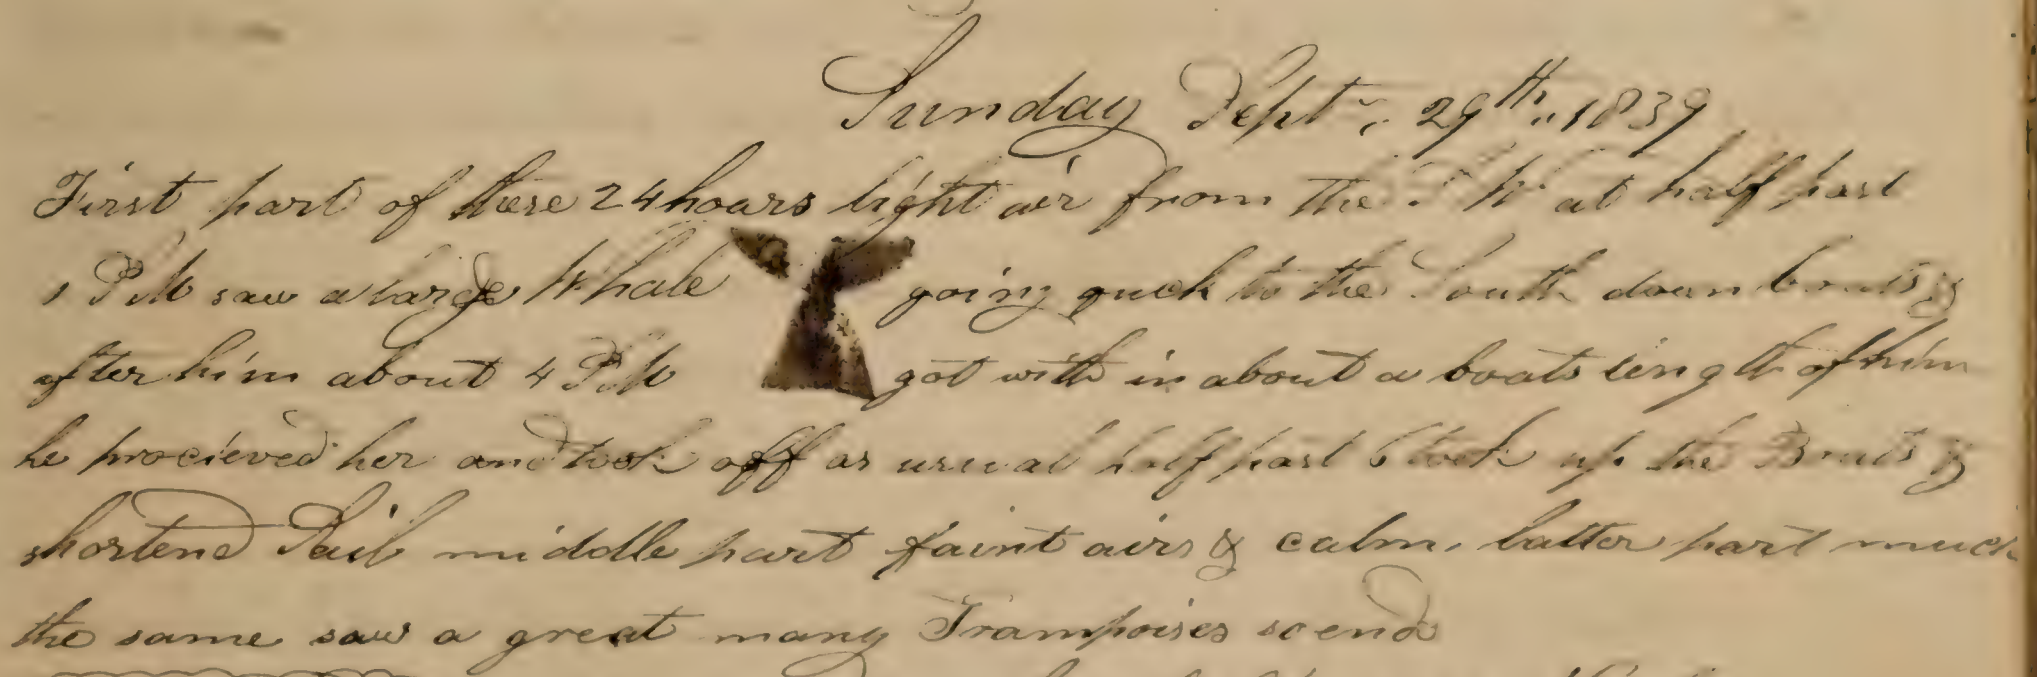 Sunday Sept r. 29th., 1839
First part of these 24 hours light air from the S W at half past
1 P.M saw a large Whale going quck to the South down boats &
after him about 4 P.M got with in about a boats length of him
he procieved her and took off as usual half past 6 took up the Boats &
shortend Sail middle part faint airs & calm, latter part much
the same saw a great many Grampoises so ends